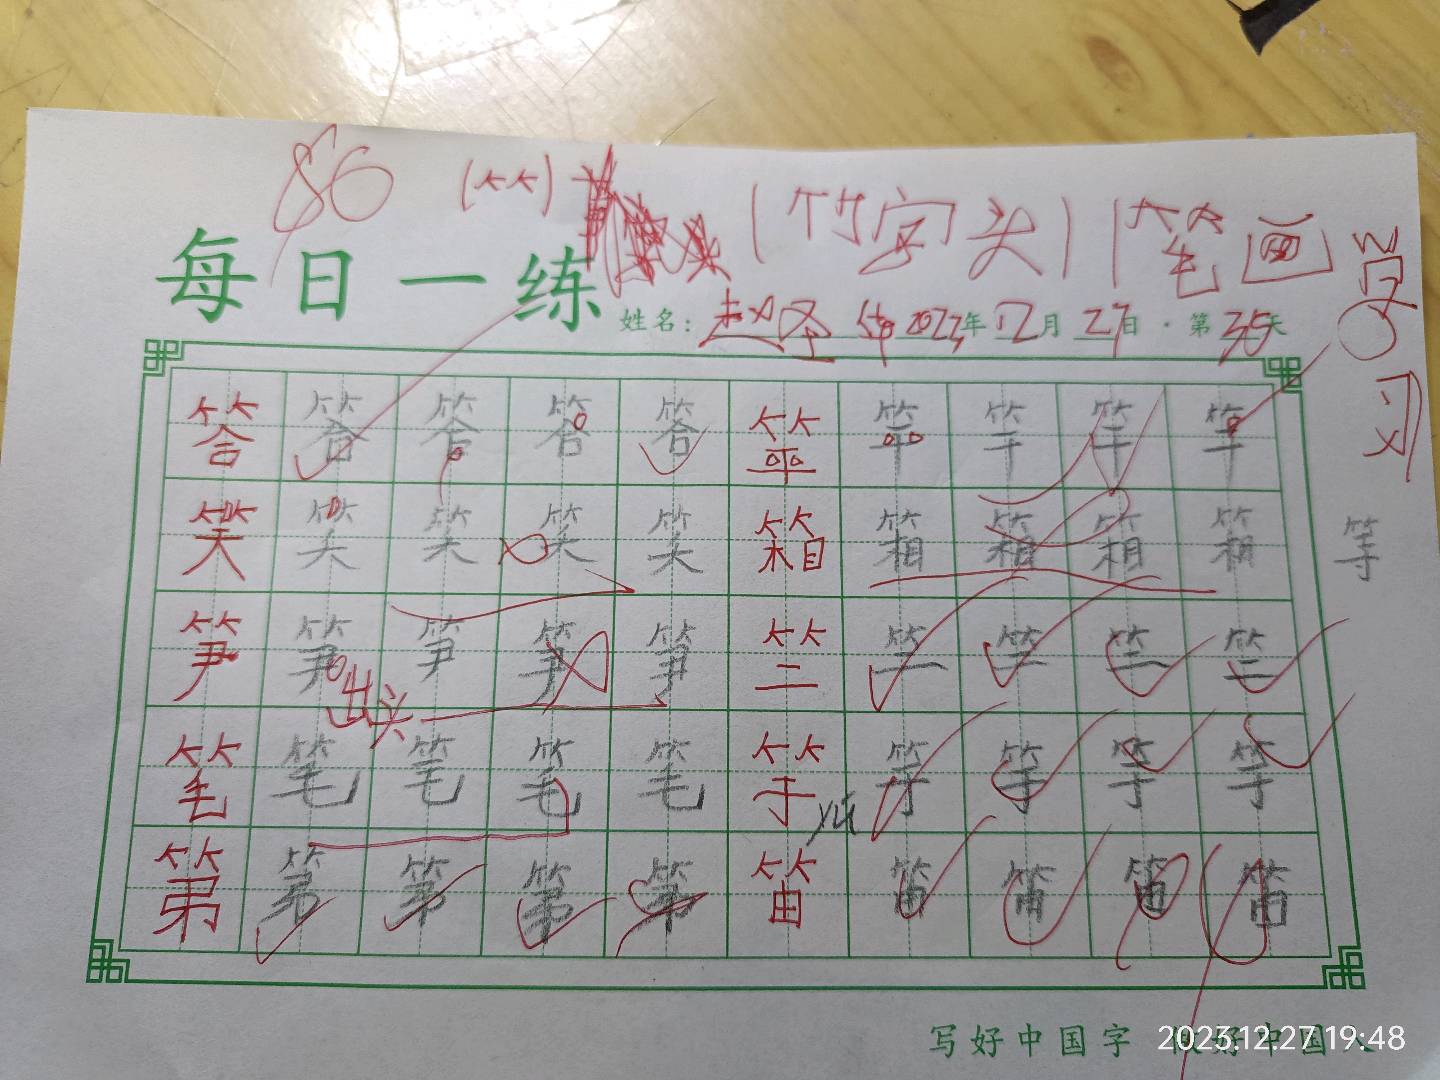 86 (⺮) (竹字头) 笔画
每日一练
姓名: 赵圣 2023年12月27日·第35天
学习
答答答答答竿竿竿竿竿
笑笑笑笑笑箱箱箱箱箱
等
笋笋笋笋笋竺竺竺竺竺
出头
笔笔笔笔笔竽竽竽竽竽
第第第第第笛笛笛笛笛
写好中国字 做好中国人
2023.12.27 19:48